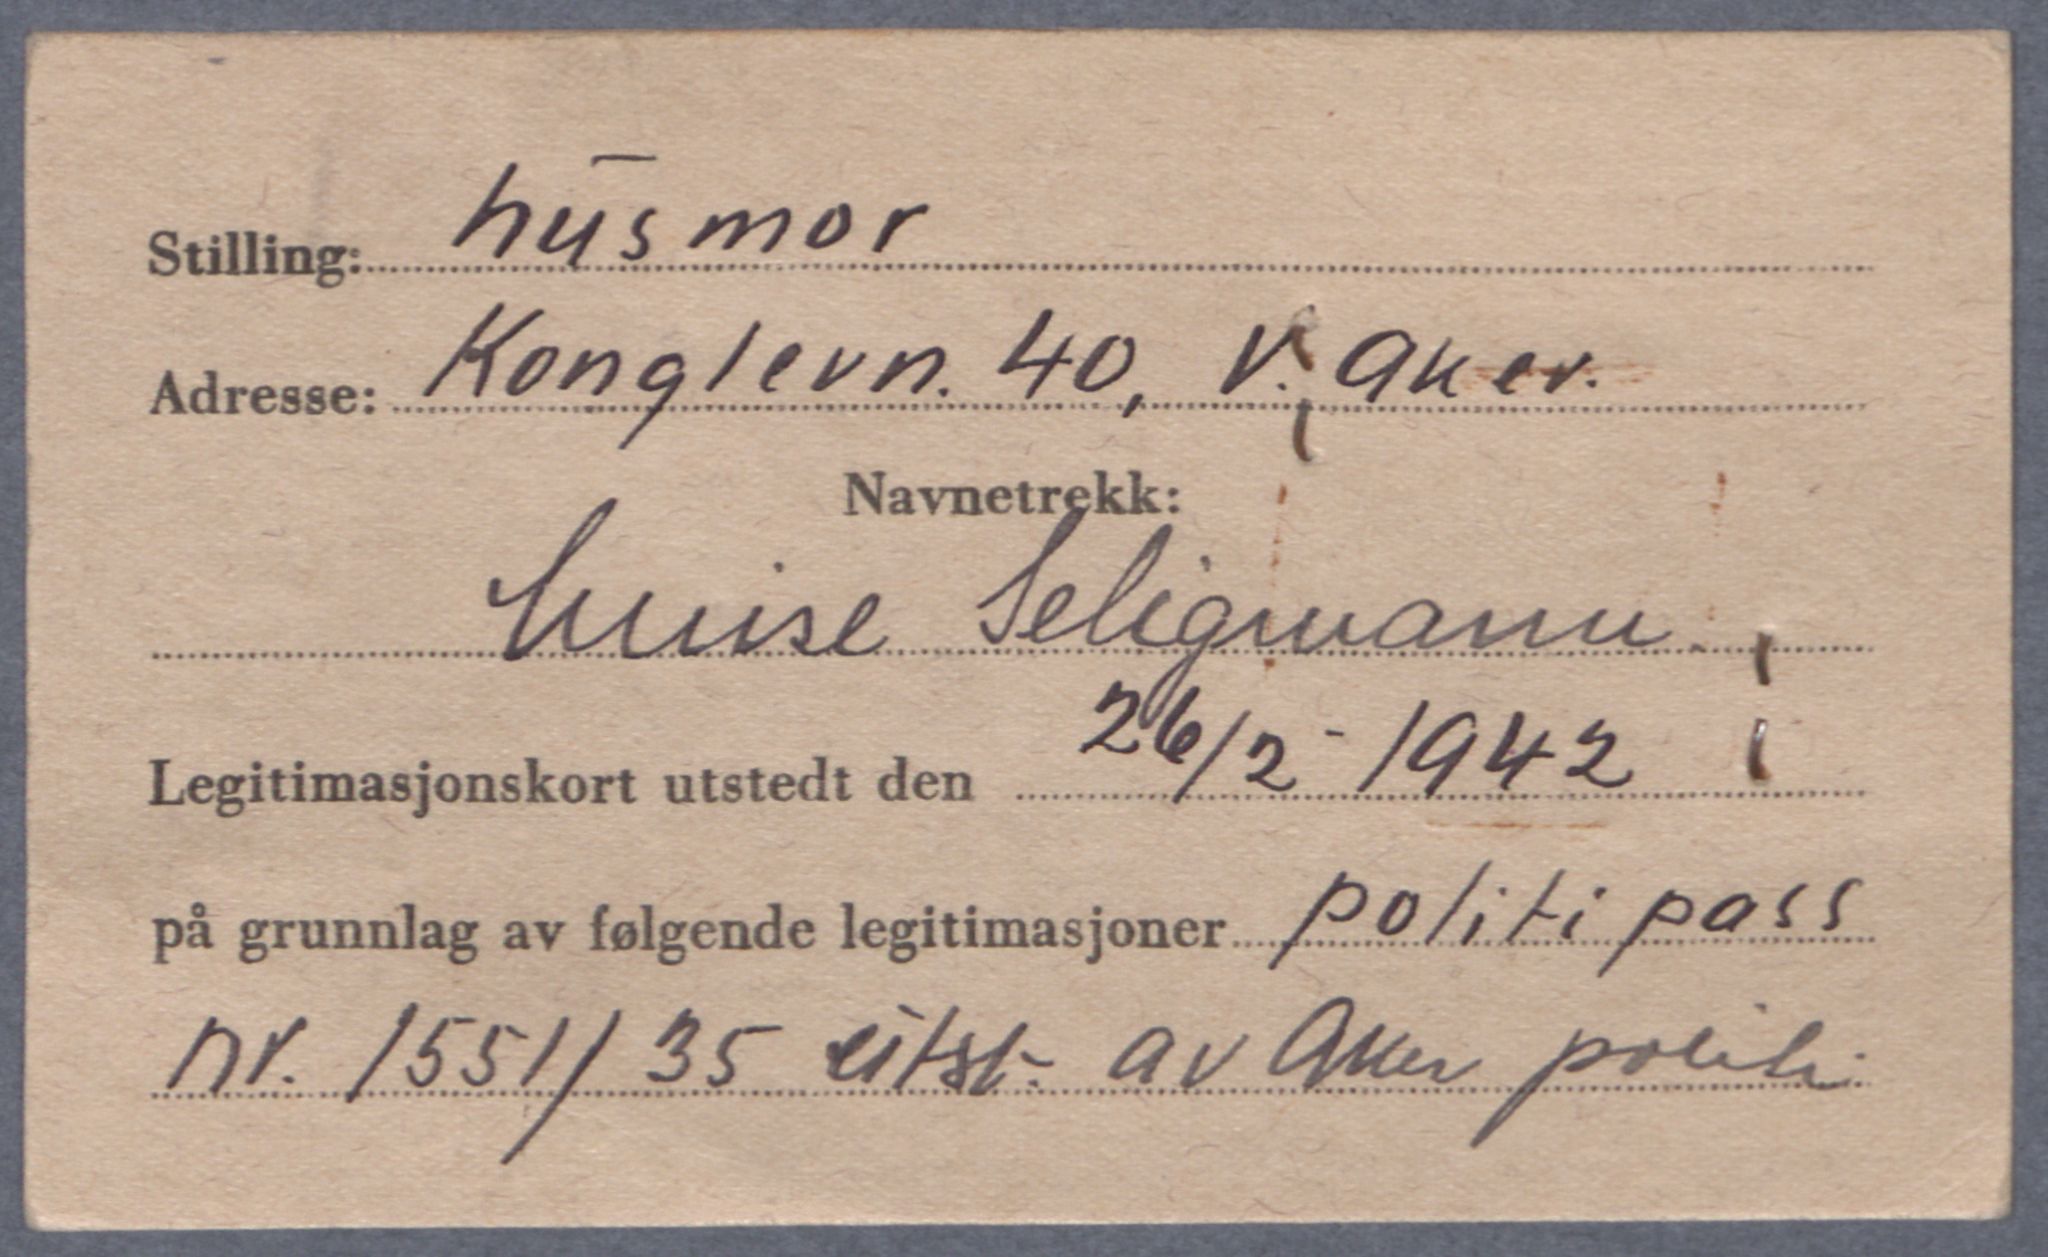 Stilling: husmor
Adresse: Konglevn. 40, V. Aker.
Navnetrekk:
Luise Seligmann.
Legitimasjonskort utstedt den 26/2 - 1942
på grunnlag av følgende legitimasjoner politipass
nr. 1551/35 utst. av Aker politi